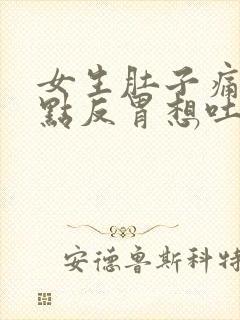 女生肚子痛
點反胃想吐
安德魯斯科特